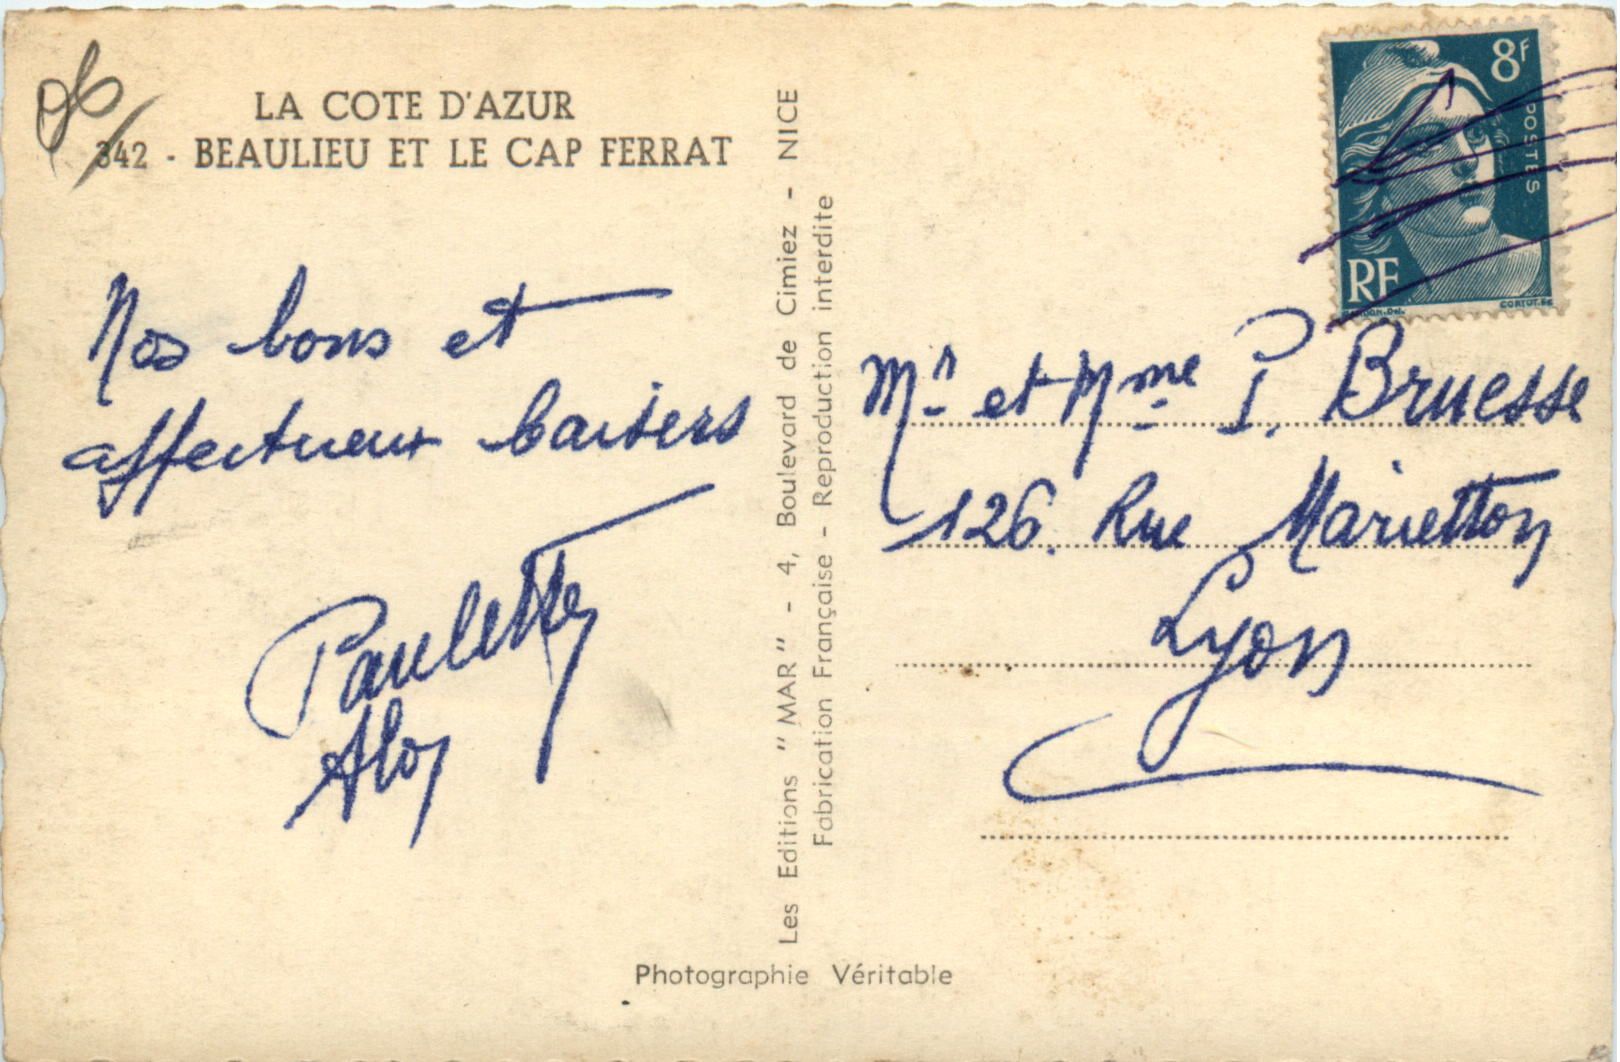 LA COTE D'AZUR
342 - BEAULIEU ET LE CAP FERRAT
Nos bons et
affectueux baisers
Paulette
Aloy
Les Editions "MAR" - 4, Boulevard de Cimiez - NICE
Fabrication Française - Reproduction interdite
Photographie Véritable
8F
POSTES
RF
GANDON.Del.
CORTOT.SC
Mr et Mme P. Bruesse
126. Rue Marietton
Lyon